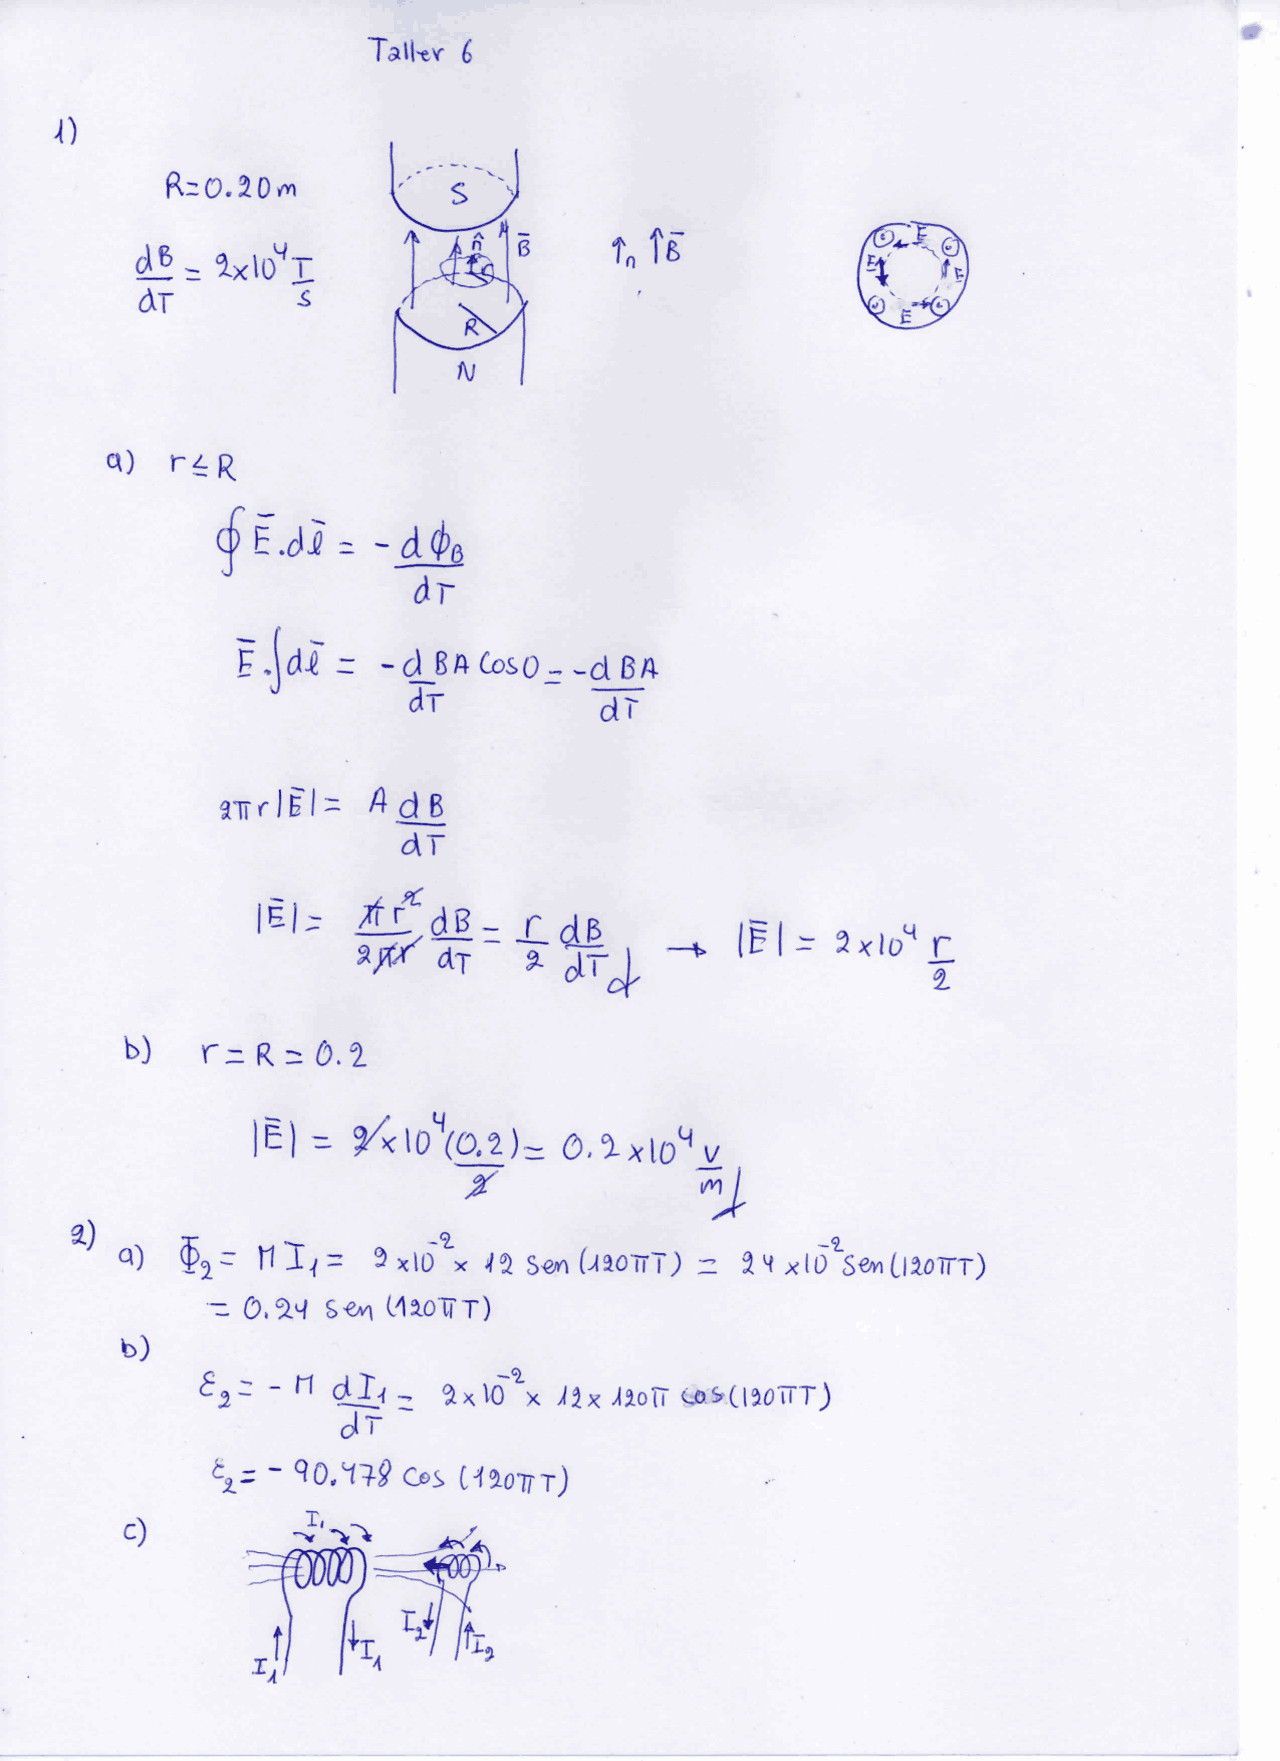 Taller 6
1)
R=0.20m
dB/dT = 2x10⁴ T/S
S
n̂
r
B̄
R
N
↑n ↑B̄
E
E
E
E
a) r≤R
∮Ē.dl̄ = -dϕB/dT
Ē.∫dl̄ = -d/dT BA Cos0 = -dBA/dT
2πr|Ē| = A dB/dT
|Ē| = πr²/2πr dB/dT = r/2 dB/dT → |Ē| = 2x10⁴ r/2
b) r=R=0.2
|Ē| = 2x10⁴(0.2)/2 = 0.2x10⁴ V/m
2)
a) Φ₂ = M I₁ = 2x10⁻² x 12 Sen(120πT) = 24x10⁻² Sen(120πT)
= 0.24 Sen(120πT)
b)
ε₂ = -M dI₁/dT = 2x10⁻² x 12x 120π cos(120πT)
ε₂ = -90.478 Cos(120πT)
c)
I₁
I₁
I₁
I₂
I₂